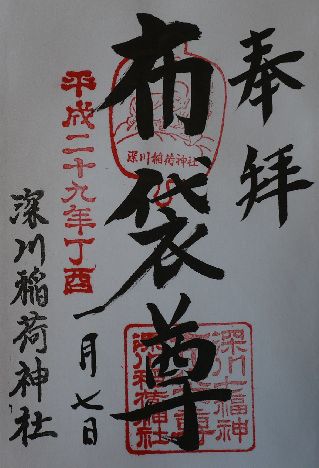 奉拝
布袋尊
深川稲荷神社
平成二十九年丁酉
一月七日
深川稲荷神社
深川七福神
布袋尊
深川稲荷神社